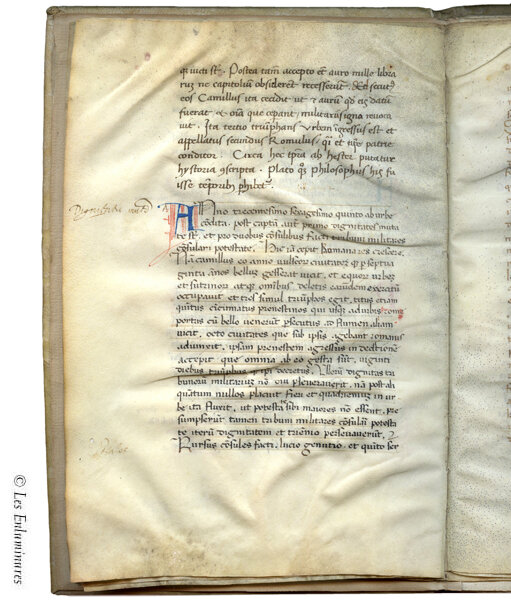 qi victi st. Postea tam accepto et auro mille libra
rum ne capitolium obsiderent recesserunt. Sed secut9
eos Camillus ita cecidit ut & aurum qd eis datum
fuerat & omnia que ceperant militaria signa revoca
vit. Ita tertio triumphans Urbem igressus est et
appellatus secundus Romulus, qi et ipse patrie
conditor. Circa hec tpra ab hester putatur
hystoria conscripta. Plato qs philosophus his fu
isse temporibus phibet.
Dignitates mutate
Anno trecentesimo sexagesimo quinto ab urbe
condita, post captam aut primo dignitates muta
te st, et pro duobus consulibus facti tribuni militares
consulari potestate. Hic iam cepit Romana res crescere.
Nam camillus eo anno vulscorum civitatem q p septua
ginta anos bellum gesserat vicit, et equorum urbem
et sutrinorum atq omnibus deletis earundem exercitum
occupavit et tres simul triumphos egit, titus etiam
quintus cicinnatus prenestinos qui usqe ad urbis rome
portas cum bello venerunt psecutus ad flumen aliam
vicit, octo civitates que sub ipsis agebant romanis
adiunxit, ipsam prenestem agressus in deditionem
accepit que omnia ab eo gesta sunt, viginti
diebus triumphus q ipi decretus. Verum dignitas tri
bunorum militarium non diu pseveravit, nam post ali
quantum nullos placuit fieri et quadrienium in ur
be ita fluxit, ut potestates ibi maiores non essent, pre
sumpserunt tamen tribuni militares consulari potesta
te iterum dignitatem et trienio perseveraverunt,
Rursus consules facti, lucio genutio et quinto ser
© Les Enluminures